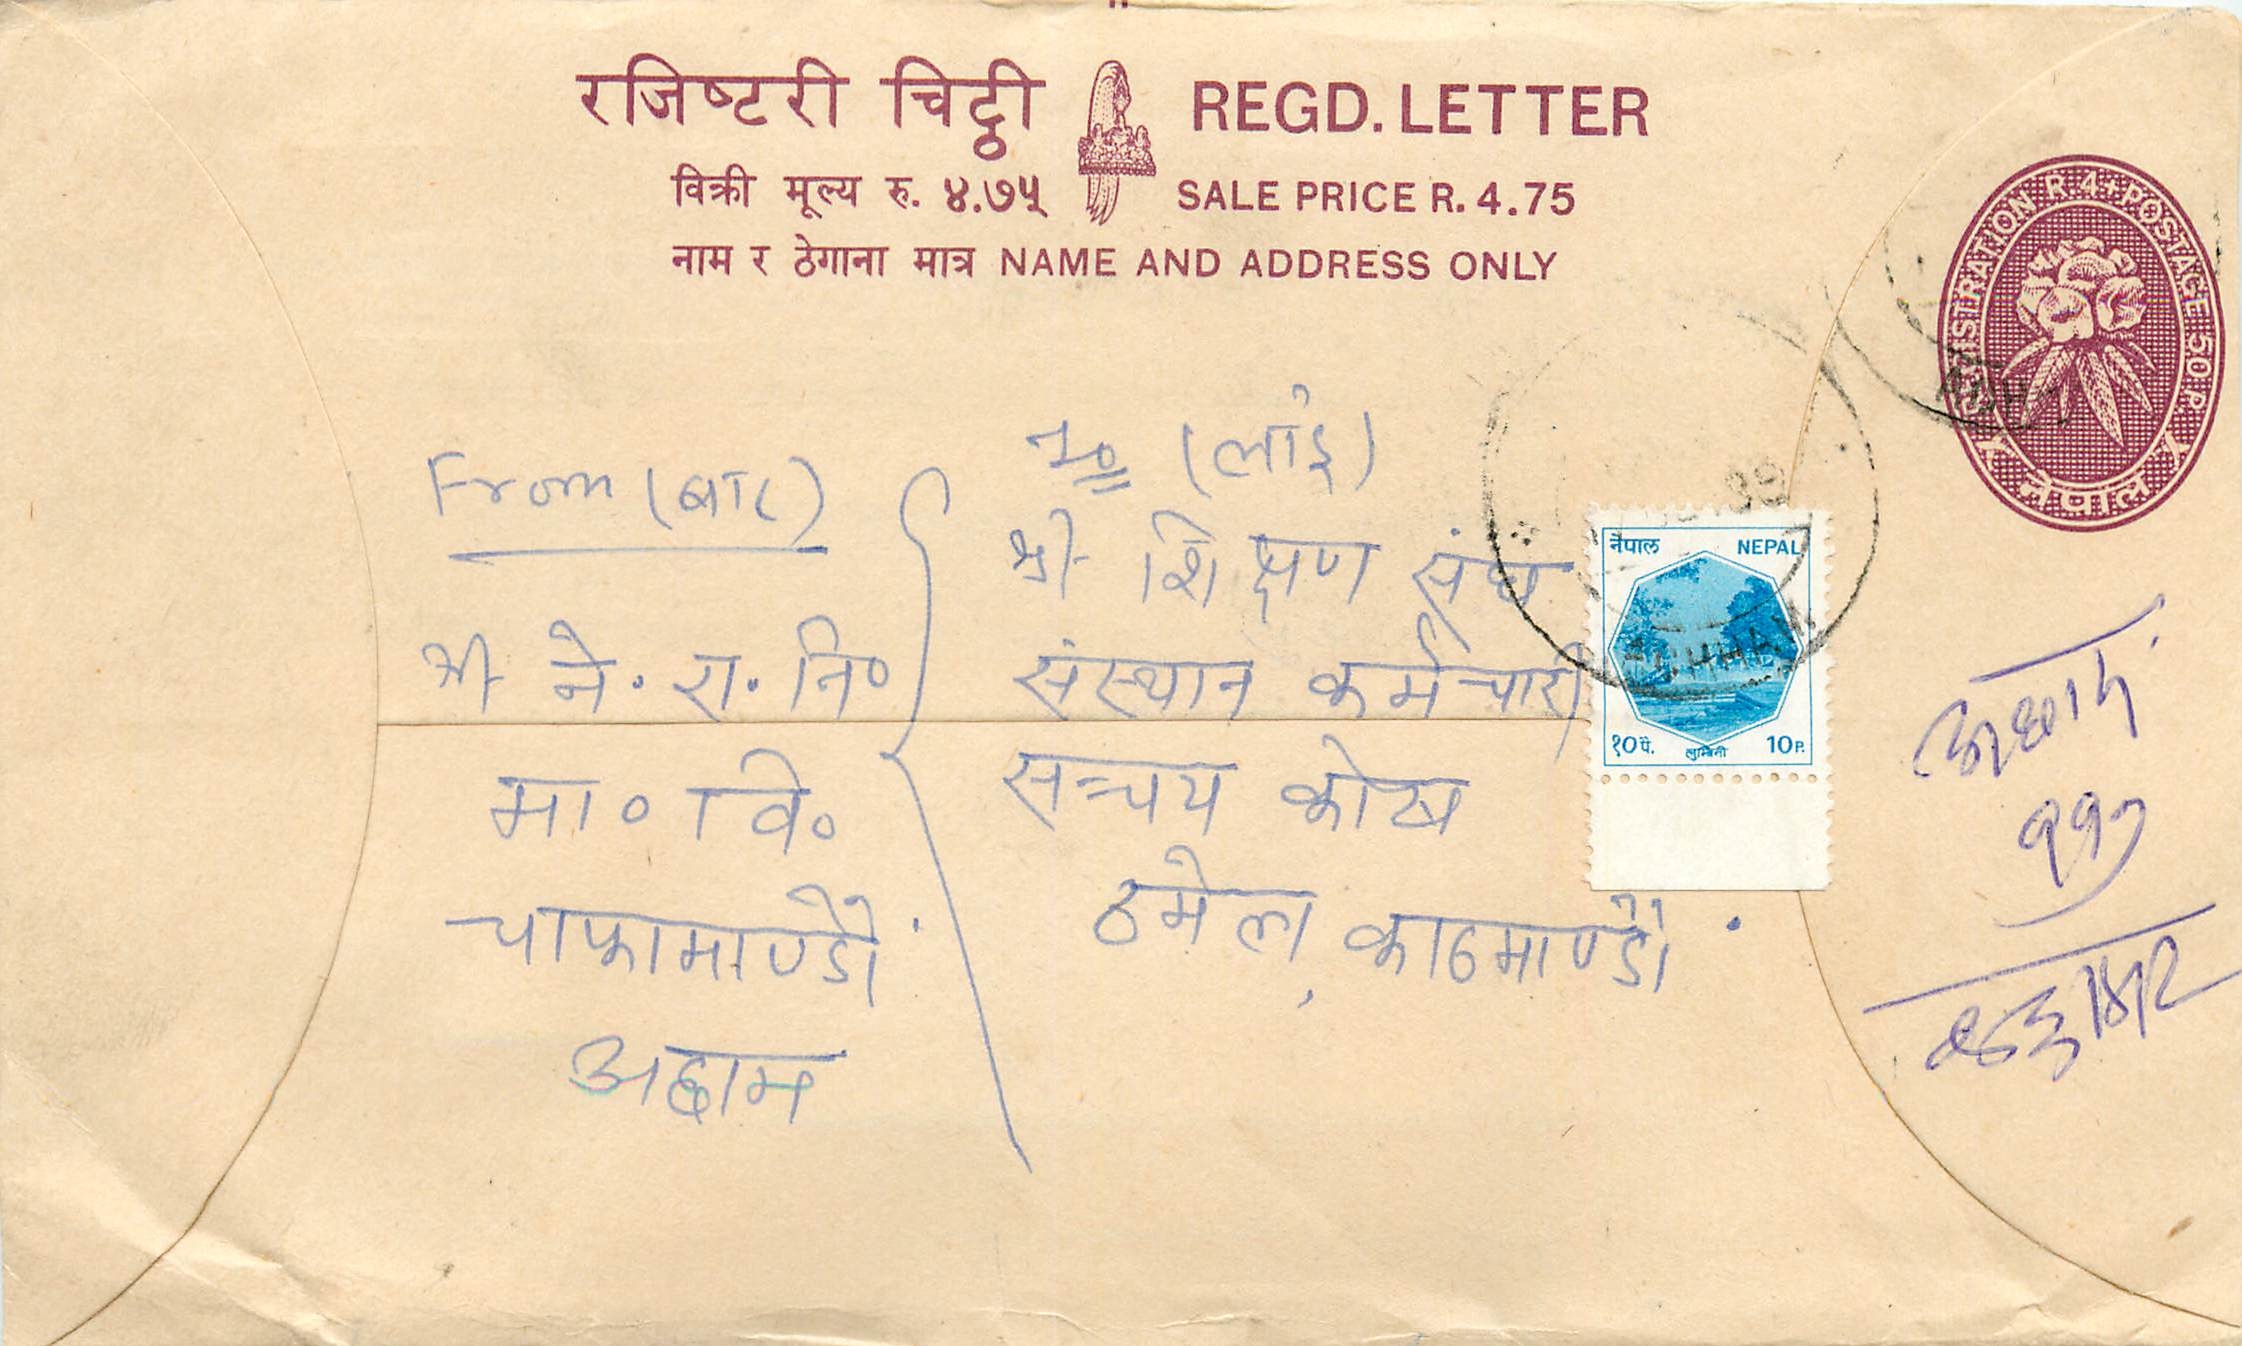 रजिष्टरी चिट्ठी REGD. LETTER
विक्री मूल्य रु. ४.७५ SALE PRICE R. 4.75
नाम र ठेगाना मात्र NAME AND ADDRESS ONLY
REGISTRATION R 4+POSTAGE 50 P.
नेपाल
From (बाट)
श्री ने. रा. नि०
मा० वि०
चाफामाण्डौ
अछाम
To (लाई)
श्री शिक्षण संघ
संस्थान कर्मचारी
सञ्चय कोष
ठमेल, काठमाण्डौ
नेपाल NEPAL
१० पै. लुम्बिनी 10 P.
अछाम
११७